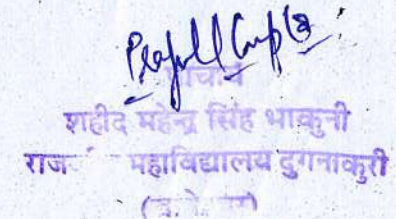 Prafull Gupta
प्राचार्य
शहीद महेन्द्र सिंह भाकुनी
राज महाविद्यालय दुगनाकुरी